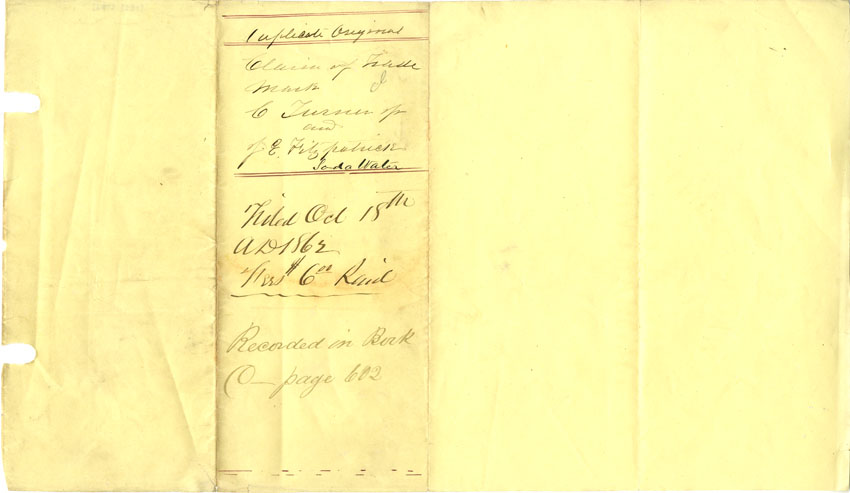 Duplicate Original
Claim of Trade
Mark
C Turner of
and
J E. Fitzpatrick
Soda Water
Filed Oct 18th
AD 1862
Fees $ 6.00 Paid
Recorded in Book
O — page 602